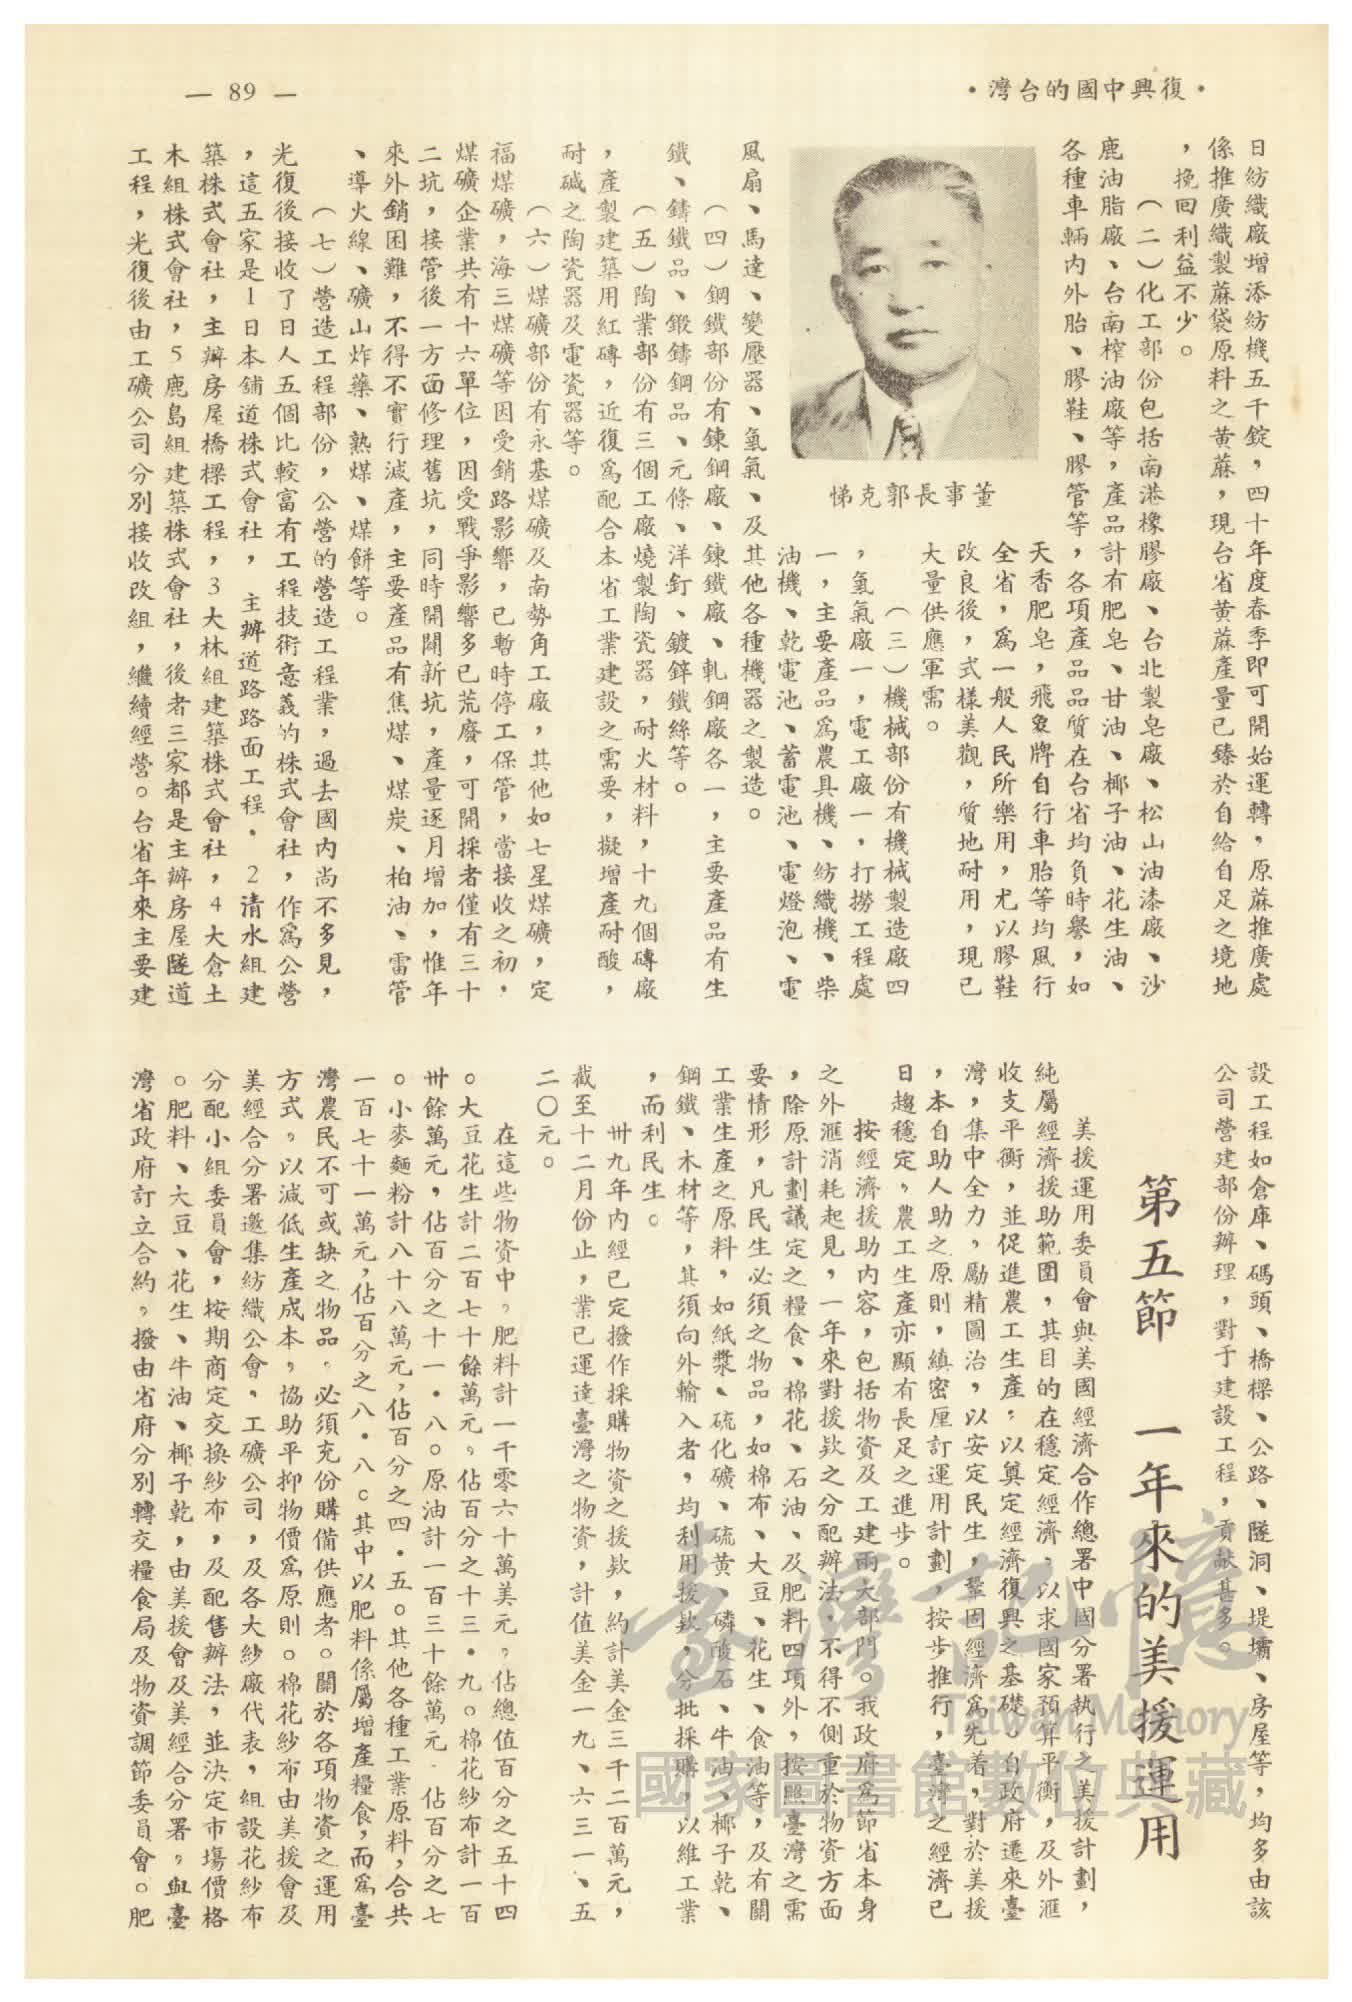 •復興中國的台灣•
— 89 —
日紡織廠增添紡機五千錠，四十年度春季即可開始運轉，原蔴推廣處
係推廣織製蔴袋原料之黄蔴，現台省黄蔴產量已臻於自給自足之境地
，挽回利益不少。
（二）化工部份包括南港橡膠廠、台北製皂廠、松山油漆廠、沙
鹿油脂廠、台南榨油廠等，產品計有肥皂、甘油、椰子油、花生油、
各種車輛內外胎、膠鞋、膠管等，各項產品品質在台省均負時譽，如
天香肥皂，飛象牌自行車胎等均風行
全省，爲一般人民所樂用，尤以膠鞋
改良後，式樣美觀，質地耐用，現已
大量供應軍需。
董事長郭克悌
（三）機械部份有機械製造廠四
，氧氣廠一，電工廠一，打撈工程處
一，主要產品爲農具機、紡織機、柴
油機、乾電池、蓄電池、電燈泡、電
風扇、馬達、變壓器、氧氣、及其他各種機器之製造。
（四）鋼鐵部份有鍊鋼廠、鍊鐵廠、軋鋼廠各一，主要產品有生
鐵、鑄鐵品、鍛鑄鋼品、元條、洋釘、鍍鋅鐵絲等。
（五）陶業部份有三個工廠燒製陶瓷器，耐火材料，十九個磚廠
，產製建築用紅磚，近復爲配合本省工業建設之需要，擬增產耐酸，
耐碱之陶瓷器及電瓷器等。
（六）煤礦部份有永基煤礦及南勢角工廠，其他如七星煤礦，定
福煤礦，海三煤礦等因受銷路影響，已暫時停工保管，當接收之初，
煤礦企業共有十六單位，因受戰爭影響多已荒廢，可開採者僅有三十
二坑，接管後一方面修理舊坑，同時開闢新坑，產量逐月增加，惟年
來外銷困難，不得不實行減產，主要產品有焦煤、煤炭、柏油、雷管
、導火線、礦山炸藥、熟煤、煤餅等。
（七）營造工程部份，公營的營造工程業，過去國內尚不多見，
光復後接收了日人五個比較富有工程技術意義的株式會社，作爲公營
，這五家是1日本舖道株式會社，主辦道路路面工程．2清水組建
築株式會社，主辦房屋橋樑工程，3大林組建築株式會社，4大倉土
木組株式會社，5鹿島組建築株式會社，後者三家都是主辦房屋隧道
工程，光復後由工礦公司分別接收改組，繼續經營。台省年來主要建
設工程如倉庫、碼頭、橋樑、公路、隧洞、堤壩、房屋等，均多由該
公司營建部份辦理，對于建設工程，貢献甚多。
第五節　一年來的美援運用
美援運用委員會與美國經濟合作總署中國分署執行之美援計劃，
純屬經濟援助範圍，其目的在穩定經濟、以求國家預算平衡，及外滙
收支平衡，並促進農工生產，以奠定經濟復興之基礎。自政府遷來臺
灣，集中全力，勵精圖治，以安定民生，鞏固經濟爲先着，對於美援
，本自助人助之原則，縝密厘訂運用計劃，按步推行，臺灣之經濟已
日趨穩定，農工生產亦顯有長足之進步。
按經濟援助內容，包括物資及工建兩大部門。我政府爲節省本身
之外滙消耗起見，一年來對援欵之分配辦法，不得不側重於物資方面
，除原計劃議定之糧食、棉花、石油、及肥料四項外，按照臺灣之需
要情形，凡民生必須之物品，如棉布、大豆、花生、食油等，及有關
工業生產之原料，如紙漿、硫化礦、硫黄、磷酸石、牛油、椰子乾、
鋼鐵、木材等，其須向外輸入者，均利用援欵，分批採購，以維工業
，而利民生。
卅九年內經已定撥作採購物資之援欵，約計美金三千二百萬元，
截至十二月份止，業已運達臺灣之物資，計值美金一九、六三一、五
二〇元。
在這些物資中，肥料計一千零六十萬美元，佔總值百分之五十四
。大豆花生計二百七十餘萬元，佔百分之十三．九。棉花紗布計一百
卅餘萬元，佔百分之十一．八。原油計一百三十餘萬元．佔百分之七
。小麥麵粉計八十八萬元，佔百分之四．五。其他各種工業原料，合共
一百七十一萬元，佔百分之八．八。其中以肥料係屬增產糧食，而爲臺
灣農民不可或缺之物品，必須充份購備供應者。關於各項物資之運用
方式，以減低生產成本，協助平抑物價爲原則。棉花紗布由美援會及
美經合分署邀集紡織公會，工礦公司，及各大紗廠代表，組設花紗布
分配小組委員會，按期商定交換紗布，及配售辦法，並決定市場價格
。肥料、大豆、花生、牛油、椰子乾，由美援會及美經合分署，與臺
灣省政府訂立合約，撥由省府分別轉交糧食局及物資調節委員會。肥
臺灣記憶
Taiwan Memory
國家圖書館數位典藏